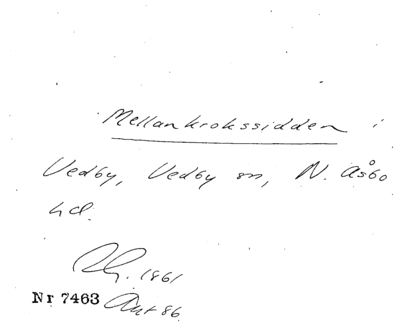 Mellankrokssidden i
Vedby, Vedby sn, N. Åsbo
hd.
Rg. 1861
Nr 7463 Ant 86.